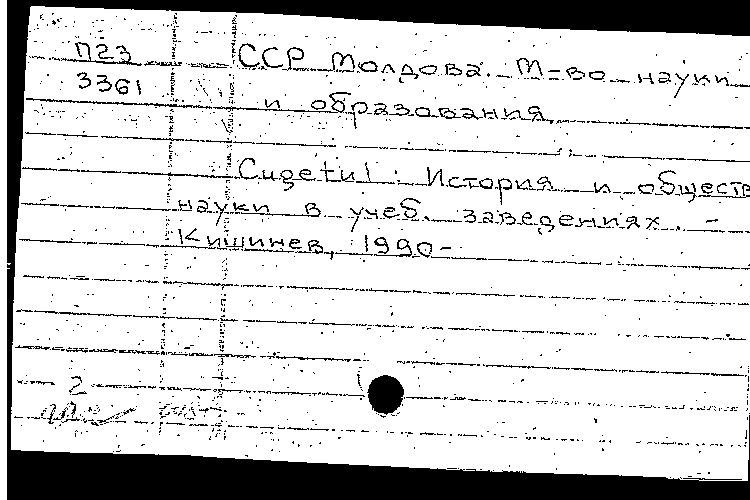 П23
3361
ССР Молдова. М-во науки
и образования.
Cugetul : История и обществ
науки в учеб. заведениях. -
Кишинев, 1990-
2